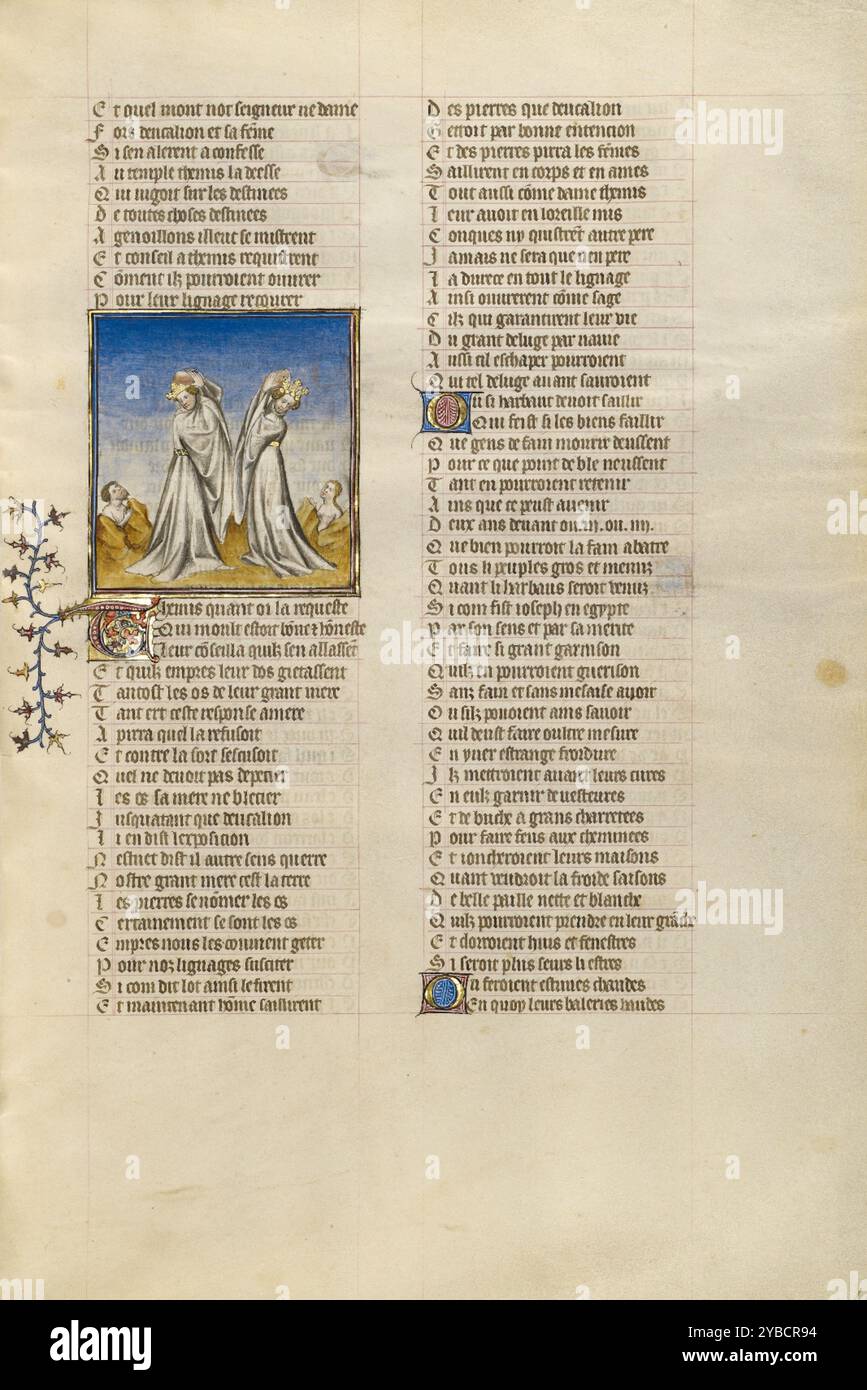 Et quel mont not seigneur ne dame
Fors deucalion et sa fẽme
Si sen alerent a confesse
Au temple themis la deesse
Qui iugoit sur les destinees
De toutes choses destinees
A genoillons illeuc se mistrent
Et conseil a themis requistrent
Cõment ilz pourroient ouurer
Pour leur lignage recouurer
Themis quant oi la requeste
Qui moult estoit bõne et hõneste
Leur cõseilla quilz sen allassẽt
Et quilz empres leur dos giettassent
Tantost les os de leur grant mere
Tant ert ceste response amere
A pirra quel la refusoit
Et contre la sort sescusoit
Quel ne deuoit pas depecier
Les os sa mere ne blecier
Jusquatant que deucalion
Li en dist lexposicion
Nestuet dist il autre sens querre
Nostre grant mere cest la terre
Les pierres se nõmer les os
Certainement se sont les os
Empres nous les conuient geter
Pour noz lignages susciter
Si com dit lot ainsi le firent
Et maintenant hõme saillirent
Des pierres que deucalion
Gettoit par bonne entencion
Et des pierres pirra les fẽmes
Saillirent en corps et en ames
Tout aussi cõme dame themis
Leur auoit en loreille mis
Conques ny quistrẽt autre pere
Jamais ne sera que nen pere
La durece en tout le lignage
Ainsi ouurerent cõme sage
Cilz qui garantirent leur vie
Du grant deluge par nauie
Aussi cil eschaper pourroient
Qui tel deluge auant sauroient
Ou si harbaut deuoit saillir
Qui feist si les biens faillir
Que gens de faim mourir deussent
Pour ce que point de ble neussent
Tant en pourroient retenir
Ains que ce peust auenir
Deux ans deuant ou .iij. ou .iiij.
Que bien pourroit la faim abatre
Tous li peuples gros et menuz
Quant li harbaus seroit venuz
Si com fist ioseph en egypte
Par son sens et par sa merite
Et faire si grant garnison
Quilz en pourroient guerison
Sanz faim et sans mesaise auoir
Ou silz pouoient ains sauoir
Quil deust faire oultre mesure
En yuer estrange froidure
Ilz mettroient auant leurs cures
En eulz garnir de uesteures
Et de buche a grans charretees
Pour faire feus aux cheminees
Et ioncheroient leurs maisons
Quant vendroit la froide saisons
De belle paille nette et blanche
Quilz pourroient prendre en leur grãche
Et clorroient huis et fenestres
Si seroit plus seurs li estres
Ou feroient estuues chaudes
En quoy leurs baleries baudes
alamy
Image ID: 2YBCR94
www.alamy.com